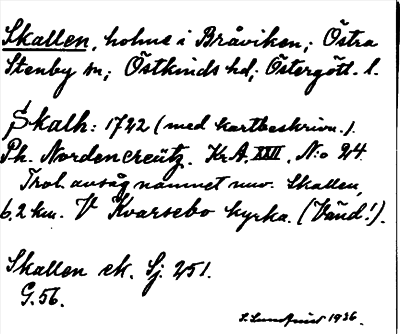 Skallen, holme i Bråviken; Östra
Stenby sn; Östkinds hd; Östergötl. l.
Skalh: 1722 (med kartbeskrivn.).
Ph. Nordencreütz. Kr.A. XXII, N:o 24.
Trol. avsåg namnet nuv. Skallen,
6,2 km. V Kvarsebo kyrka. (Vänd!).
Skallen ek. Sj 251.
G.56.
S. Lundquist 1936.